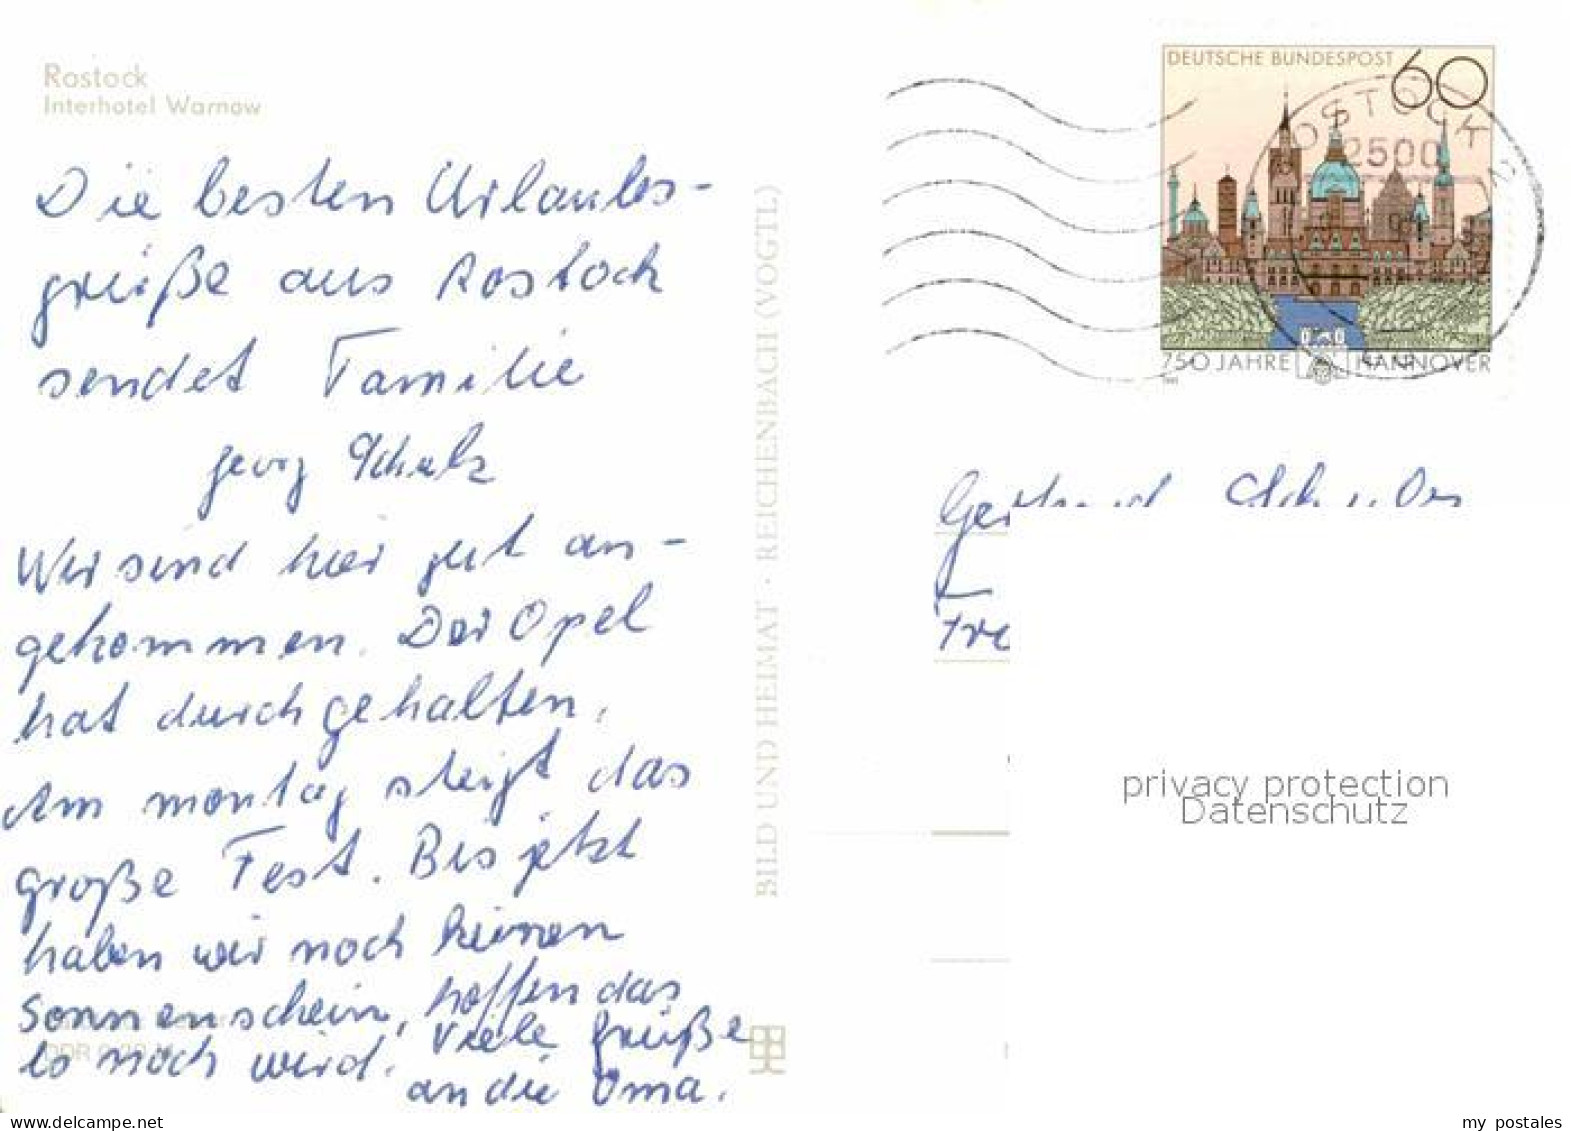 Rostock
Interhotel Warnow
Die besten Urlaubs-
grüße aus Rostock
sendet Familie
Georg Schulz
Wir sind hier gut an-
gekommen. Der Opel
hat durchgehalten.
Am montag steigt das
große Fest. Bis jetzt
haben wir noch keinen
Sonnenschein, hoffen das
es noch wird. Viele Grüße
an die Oma.
BILD UND HEIMAT · REICHENBACH (VOGTL)
DEUTSCHE BUNDESPOST 60
ROSTOCK
2500
750 JAHRE HANNOVER
privacy protection
Datenschutz
www.delcampe.net
my_postales